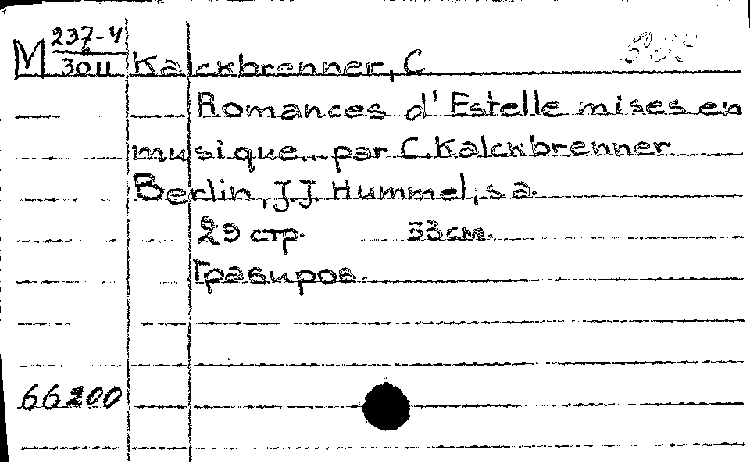 M 237-4
3011
Kalckbrenner, C
Romances d'Estelle mises en
musique... par C. Kalckbrenner
Berlin, J.J. Hummel, s.a.
29 стр. 33 см.
Гравиров.
66200